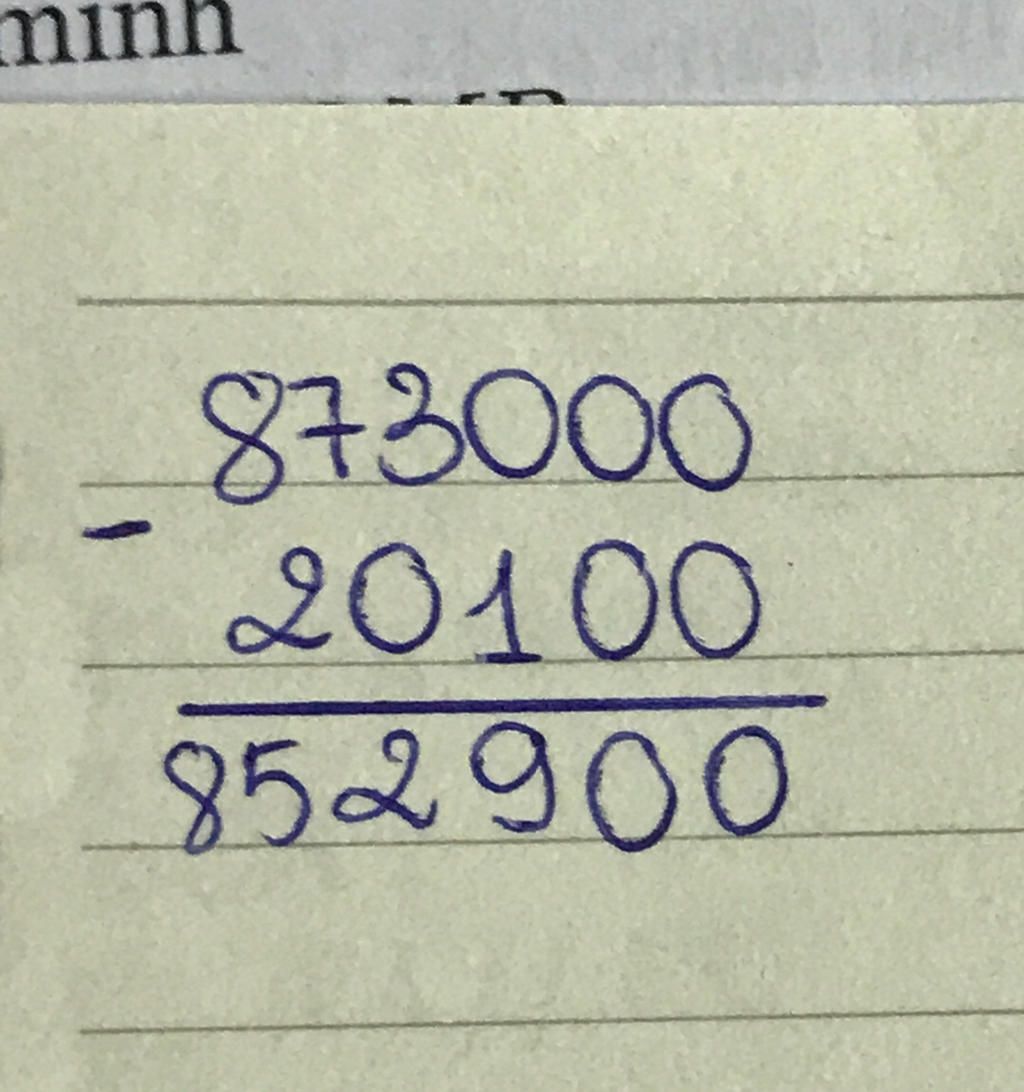 minh
873000
-
20100
852900